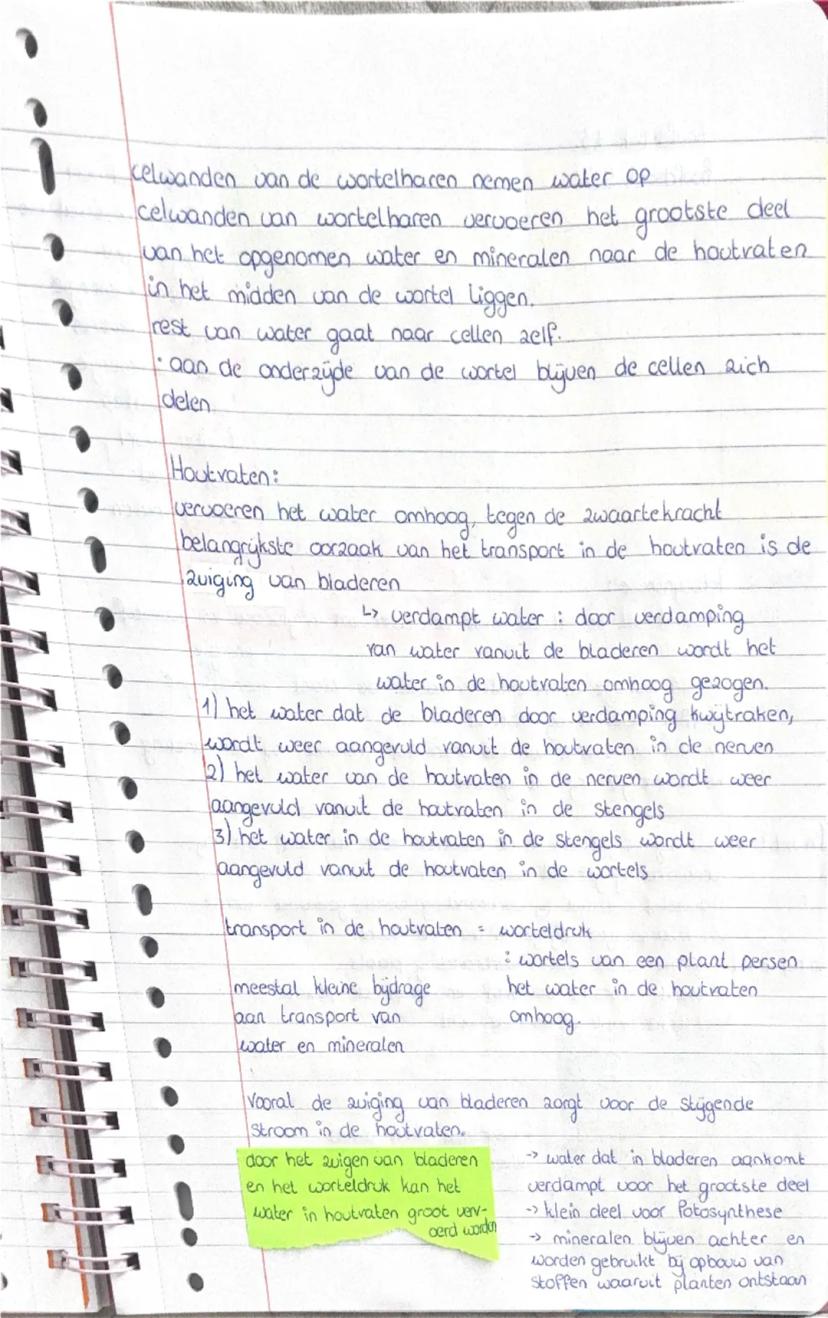 celwanden van de wortelharen nemen water op
celwanden van wortelharen vervoeren het grootste deel
van het opgenomen water en mineralen naar de houtvaten
in het midden van de wortel liggen.
rest van water gaat naar cellen zelf.
· aan de onderzijde van de wortel blijven de cellen zich
delen
Houtvaten:
vervoeren het water omhoog, tegen de zwaartekracht
belangrijkste oorzaak van het transport in de houtvaten is de
zuiging van bladeren
↳ verdampt water : door verdamping
van water vanuit de bladeren wordt het
water in de houtvaten omhoog gezogen.
1) het water dat de bladeren door verdamping kwijtraken,
wordt weer aangevuld vanuit de houtvaten in de nerven
2) het water van de houtvaten in de nerven wordt weer
aangevuld vanuit de houtvaten in de stengels
3) het water in de houtvaten in de stengels wordt weer
aangevuld vanuit de houtvaten in de wortels
transport in de houtvaten = worteldruk
: wortels van een plant persen
het water in de houtvaten
omhoog.
meestal kleine bijdrage
aan transport van
water en mineralen
vooral de zuiging van bladeren zorgt voor de stijgende
stroom in de houtvaten.
door het zuigen van bladeren
en het worteldruk kan het
water in houtvaten groot ver-
oerd worden
-> water dat in bladeren aankomt
verdampt voor het grootste deel
-> klein deel voor Fotosynthese
-> mineralen blijven achter en
worden gebruikt bij opbouw van
stoffen waaruit planten ontstaan